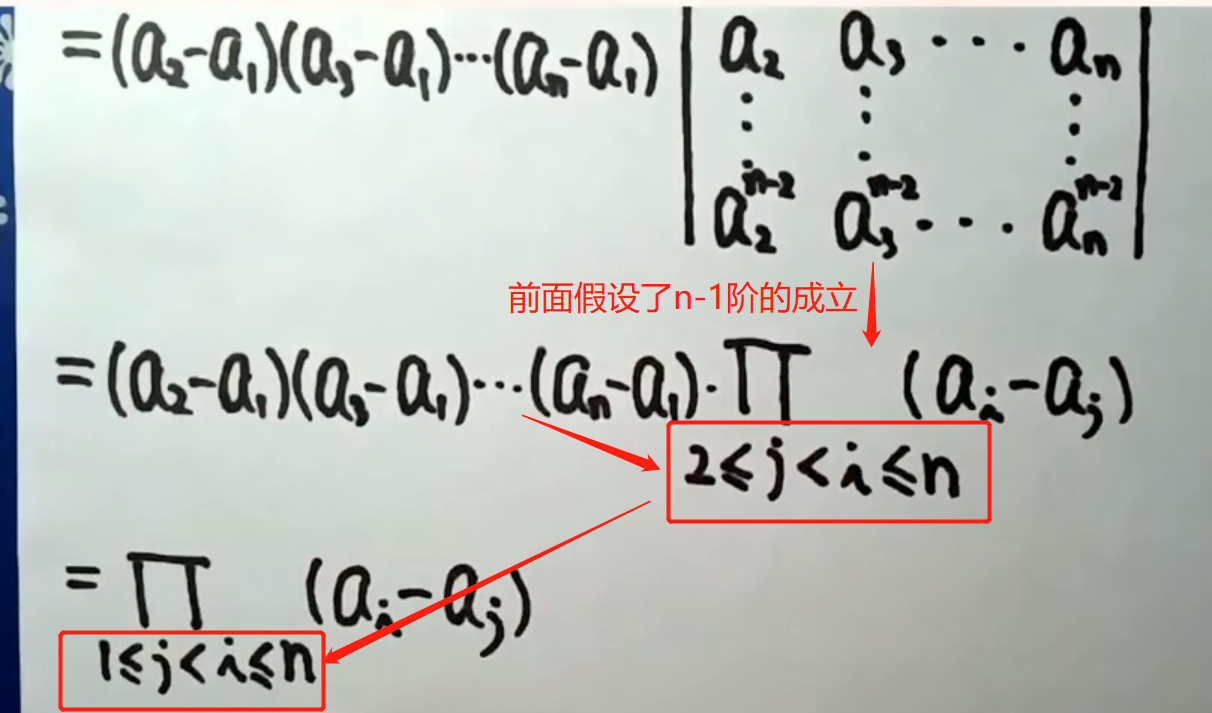 =(a₂-a₁)(a₃-a₁)···(aₙ-a₁) | a₂ a₃ ··· aₙ |
⋮ ⋮ ⋮
a₂ⁿ⁻² a₃ⁿ⁻² ··· aₙⁿ⁻²
前面假设了n-1阶的成立
=(a₂-a₁)(a₃-a₁)···(aₙ-a₁)·∏ (aᵢ-aⱼ)
2≤j<i≤n
=∏ (aᵢ-aⱼ)
1≤j<i≤n